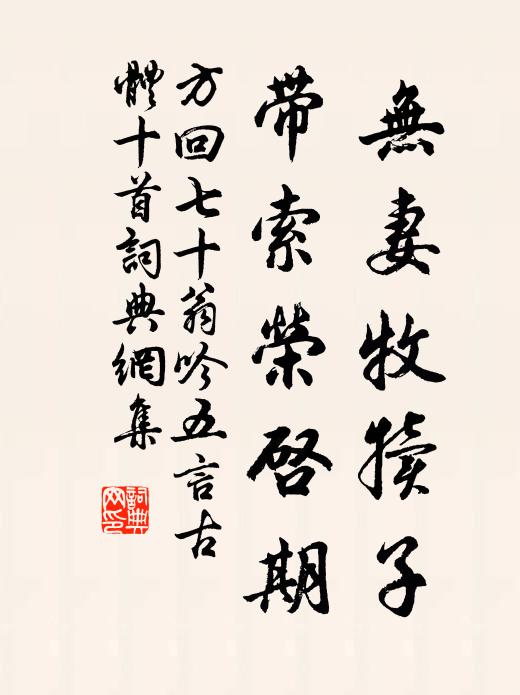 無妻牧犢子
帶索榮啓期
方回七十翁吟五言古
體十首詞典網集
詞典網印